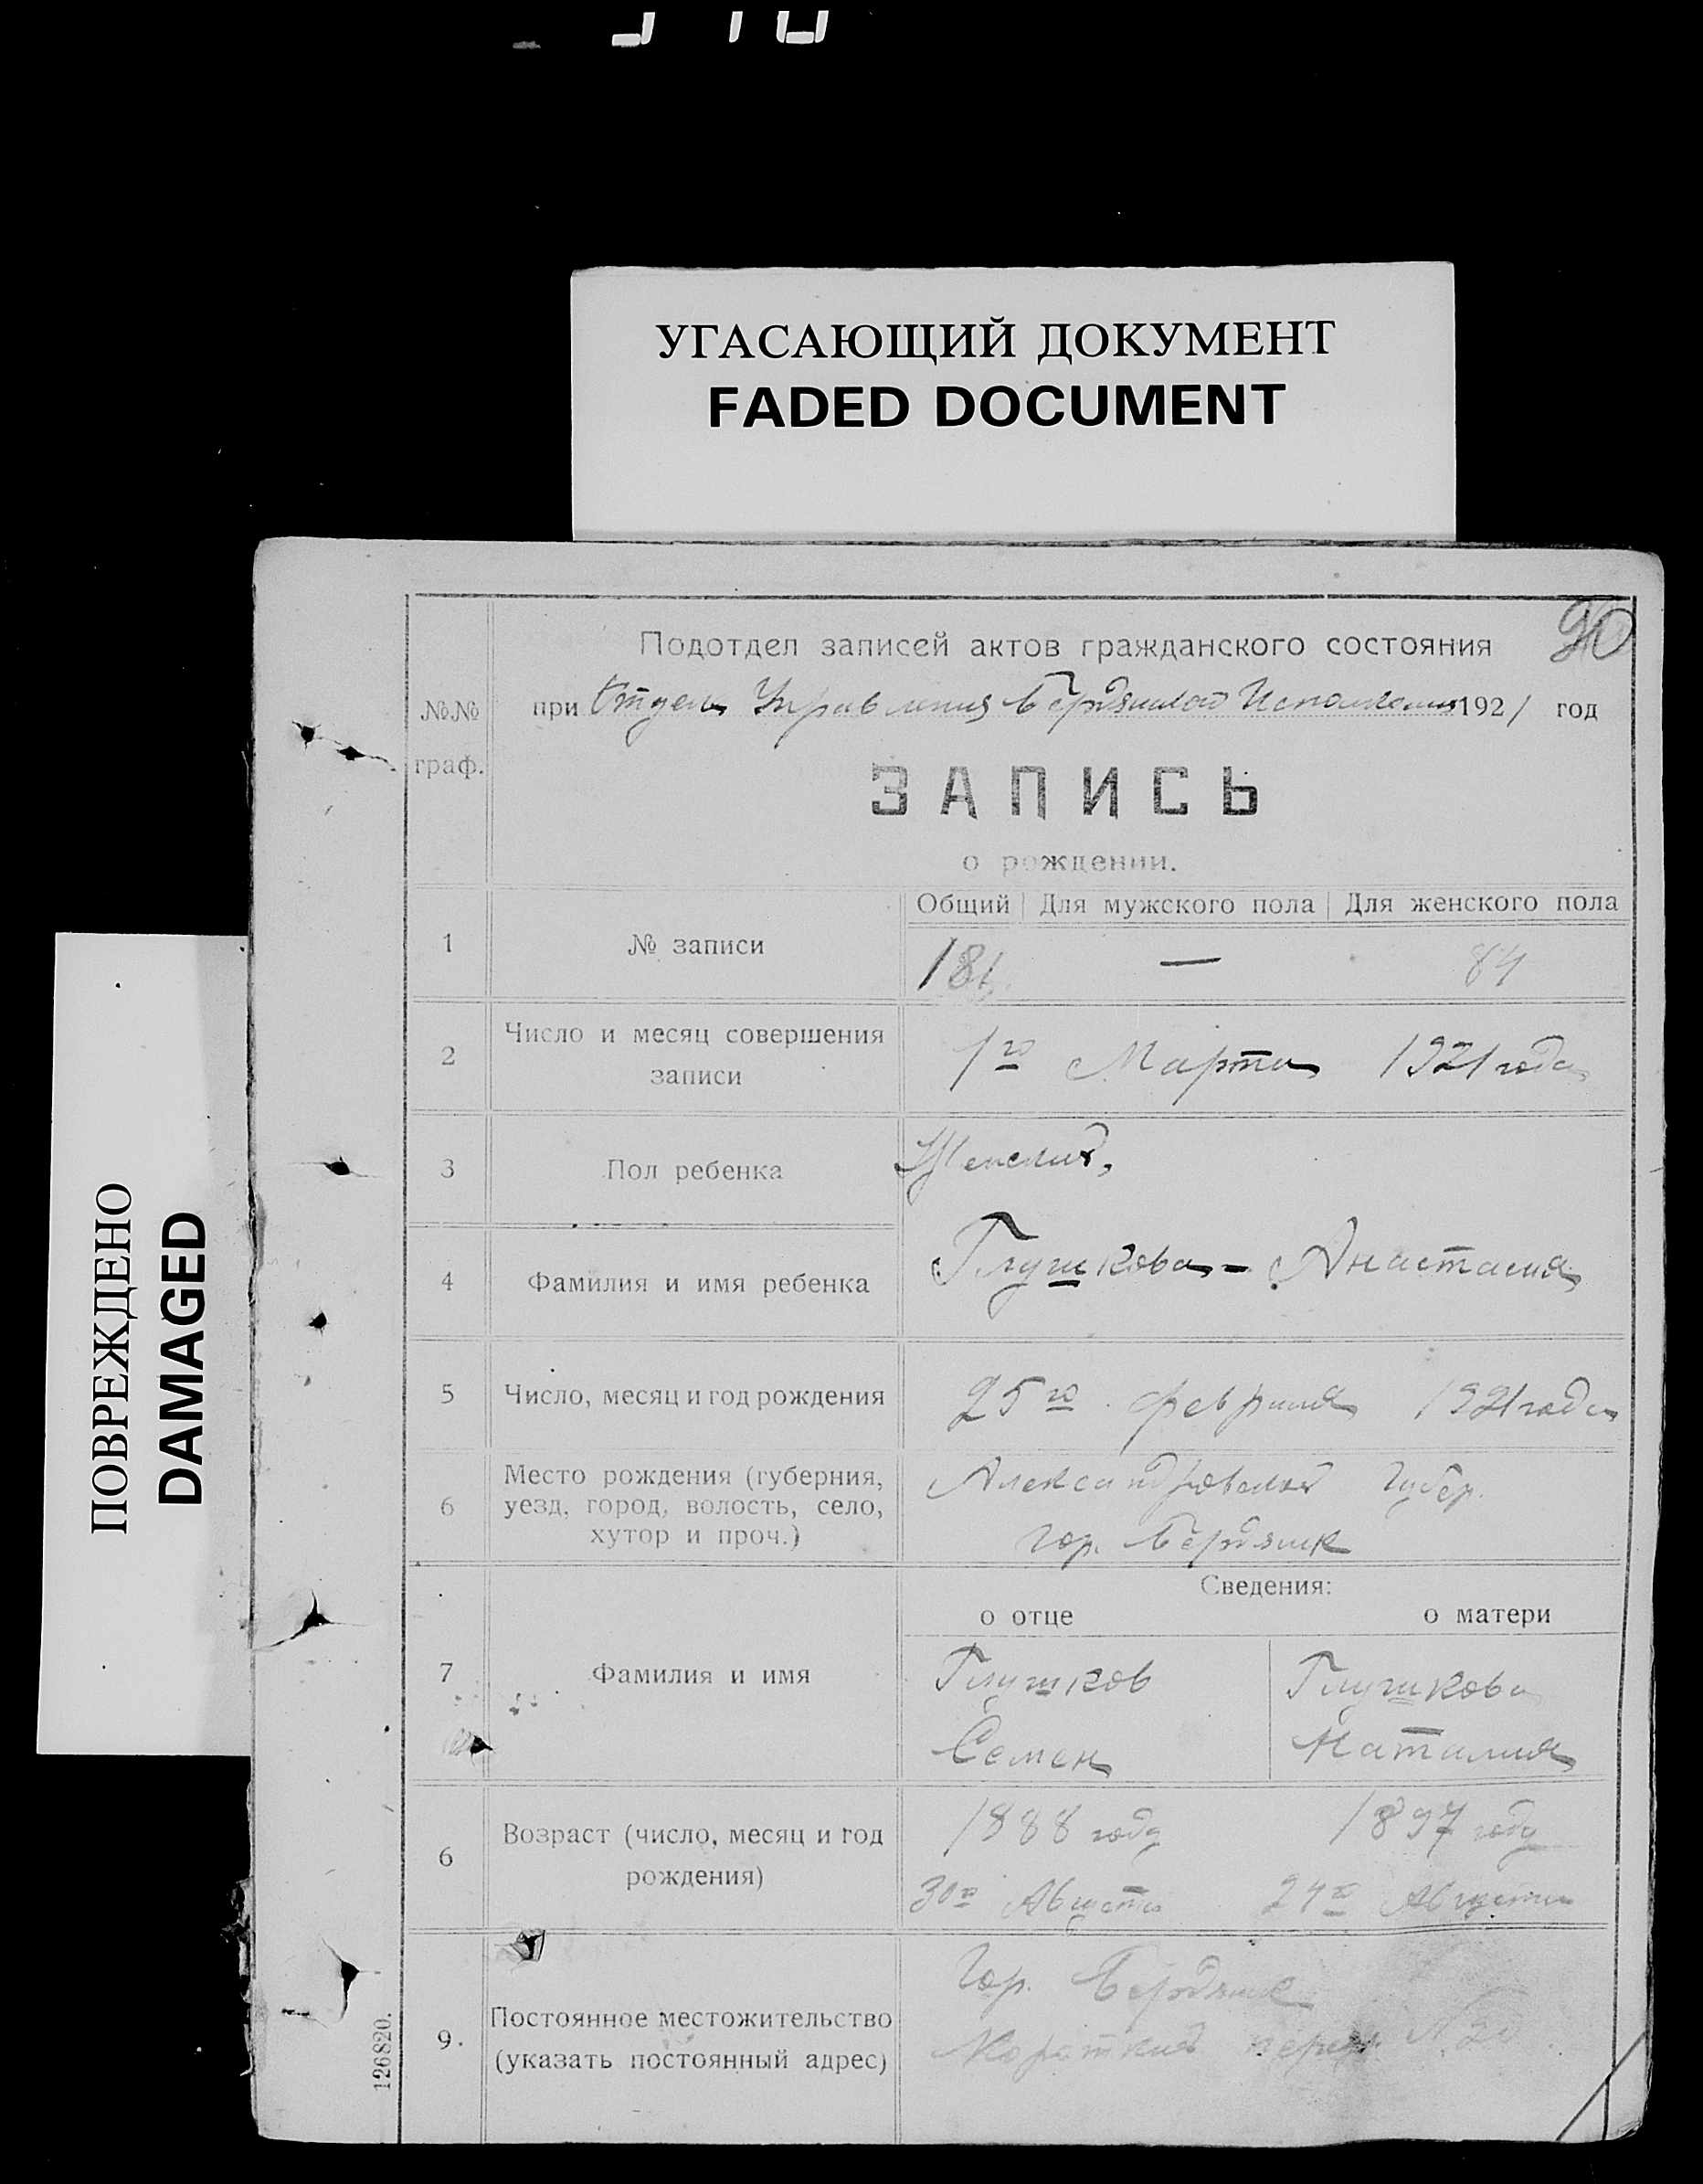 УГАСАЮЩИЙ ДОКУМЕНТ
FADED DOCUMENT
ПОВРЕЖДЕНО
DAMAGED
90
Подотдел записей актов гражданского состояния
№№ граф.
при Отделе Управления Бердянской Исполкома 1921 год
ЗАПИСЬ
о рождении.
Общий Для мужского пола Для женского пола
1 № записи 181 — 84
2 Число и месяц совершения записи 1го Марта 1921 года
3 Пол ребенка Женский,
4 Фамилия и имя ребенка Глушкова - Анастасия
5 Число, месяц и год рождения 25го февраля 1921 года
6 Место рождения (губерния, уезд, город, волость, село, хутор и проч.) Александровской Губер.
гор. Бердянск
Сведения:
о отце о матери
7 Фамилия и имя Глушков Глушкова
Семен Наталия
6 Возраст (число, месяц и год рождения) 1888 году 1897 году
30го Августа 24го Августа
9. Постоянное местожительство (указать постоянный адрес) Гор. Бердянск
Короткий переул. №
126820.